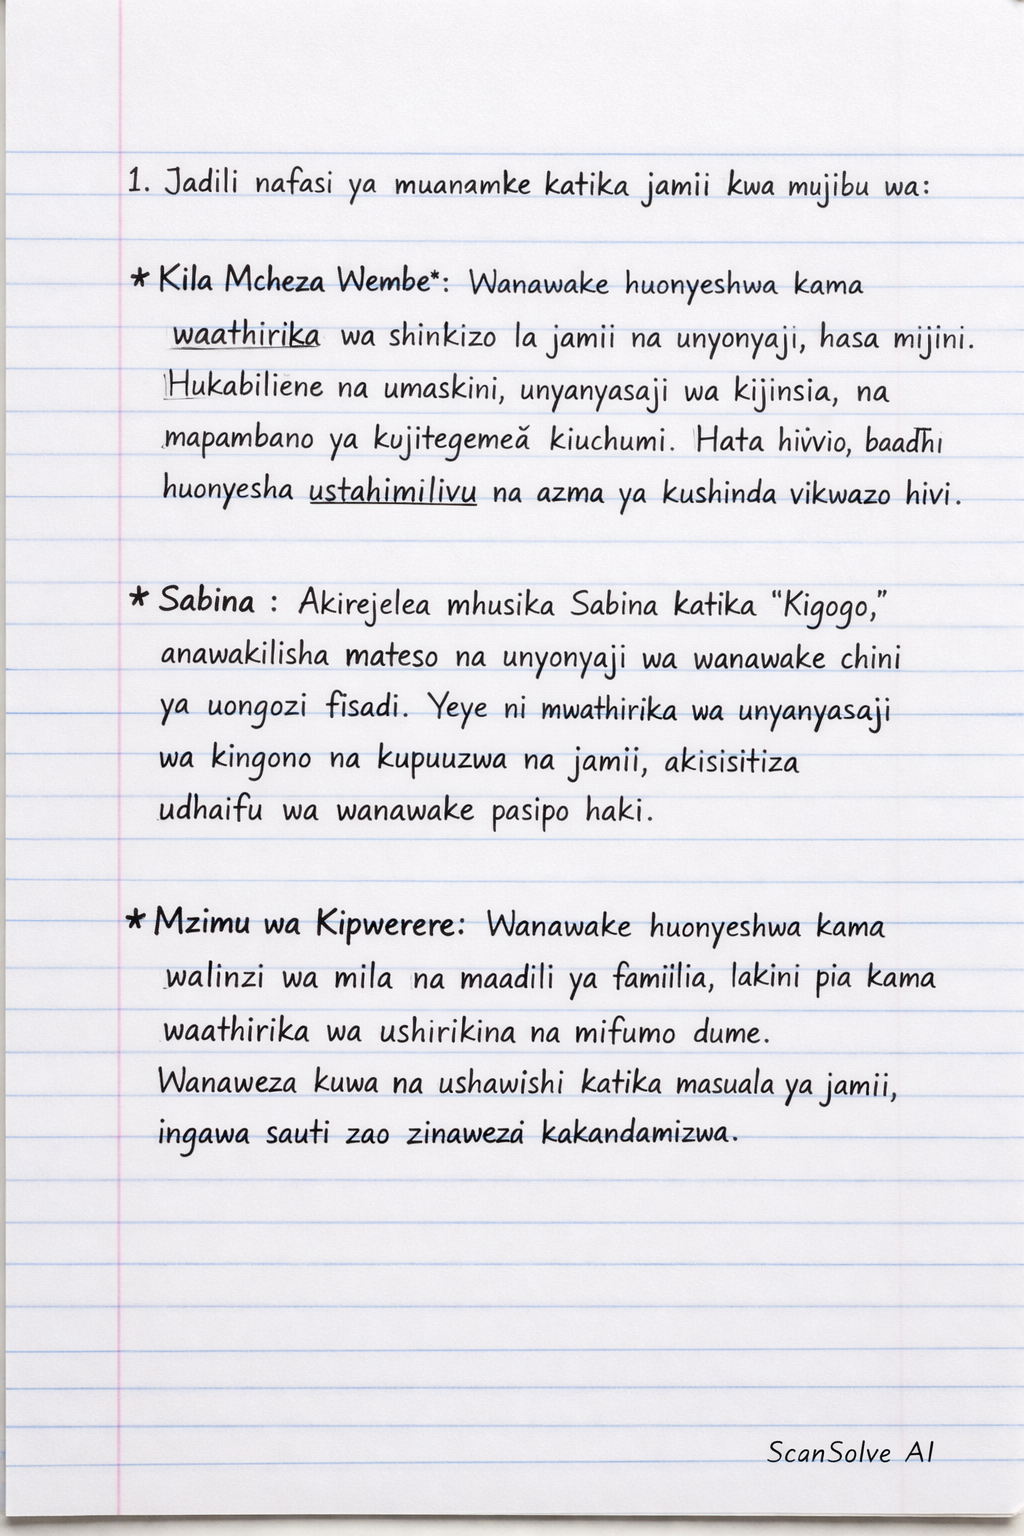 1. Jadili nafasi ya muanamke katika jamii kwa mujibu wa:
* Kila Mcheza Wembe*: Wanawake huonyeshwa kama
waathirika wa shinkizo la jamii na unyonyaji, hasa mijini.
Hukabiliene na umaskini, unyanyasaji wa kijinsia, na
mapambano ya kujitegemeă kiuchumi. Hata hivvio, baadhi
huonyesha ustahimilivu na azma ya kushinda vikwazo hivi.
* Sabina : Akirejelea mhusika Sabina katika “Kigogo,”
anawakilisha mateso na unyonyaji wa wanawake chini
ya uongozi fisadi. Yeye ni mwathirika wa unyanyasaji
wa kingono na kupuuzwa na jamii, akisisitiza
udhaifu wa wanawake pasipo haki.
* Mzimu wa Kipwerere: Wanawake huonyeshwa kama
walinzi wa mila na maadili ya famiilia, lakini pia kama
waathirika wa ushirikina na mifumo dume.
Wanaweza kuwa na ushawishi katika masuala ya jamii,
ingawa sauti zao zinaweza kakandamizwa.
ScanSolve AI